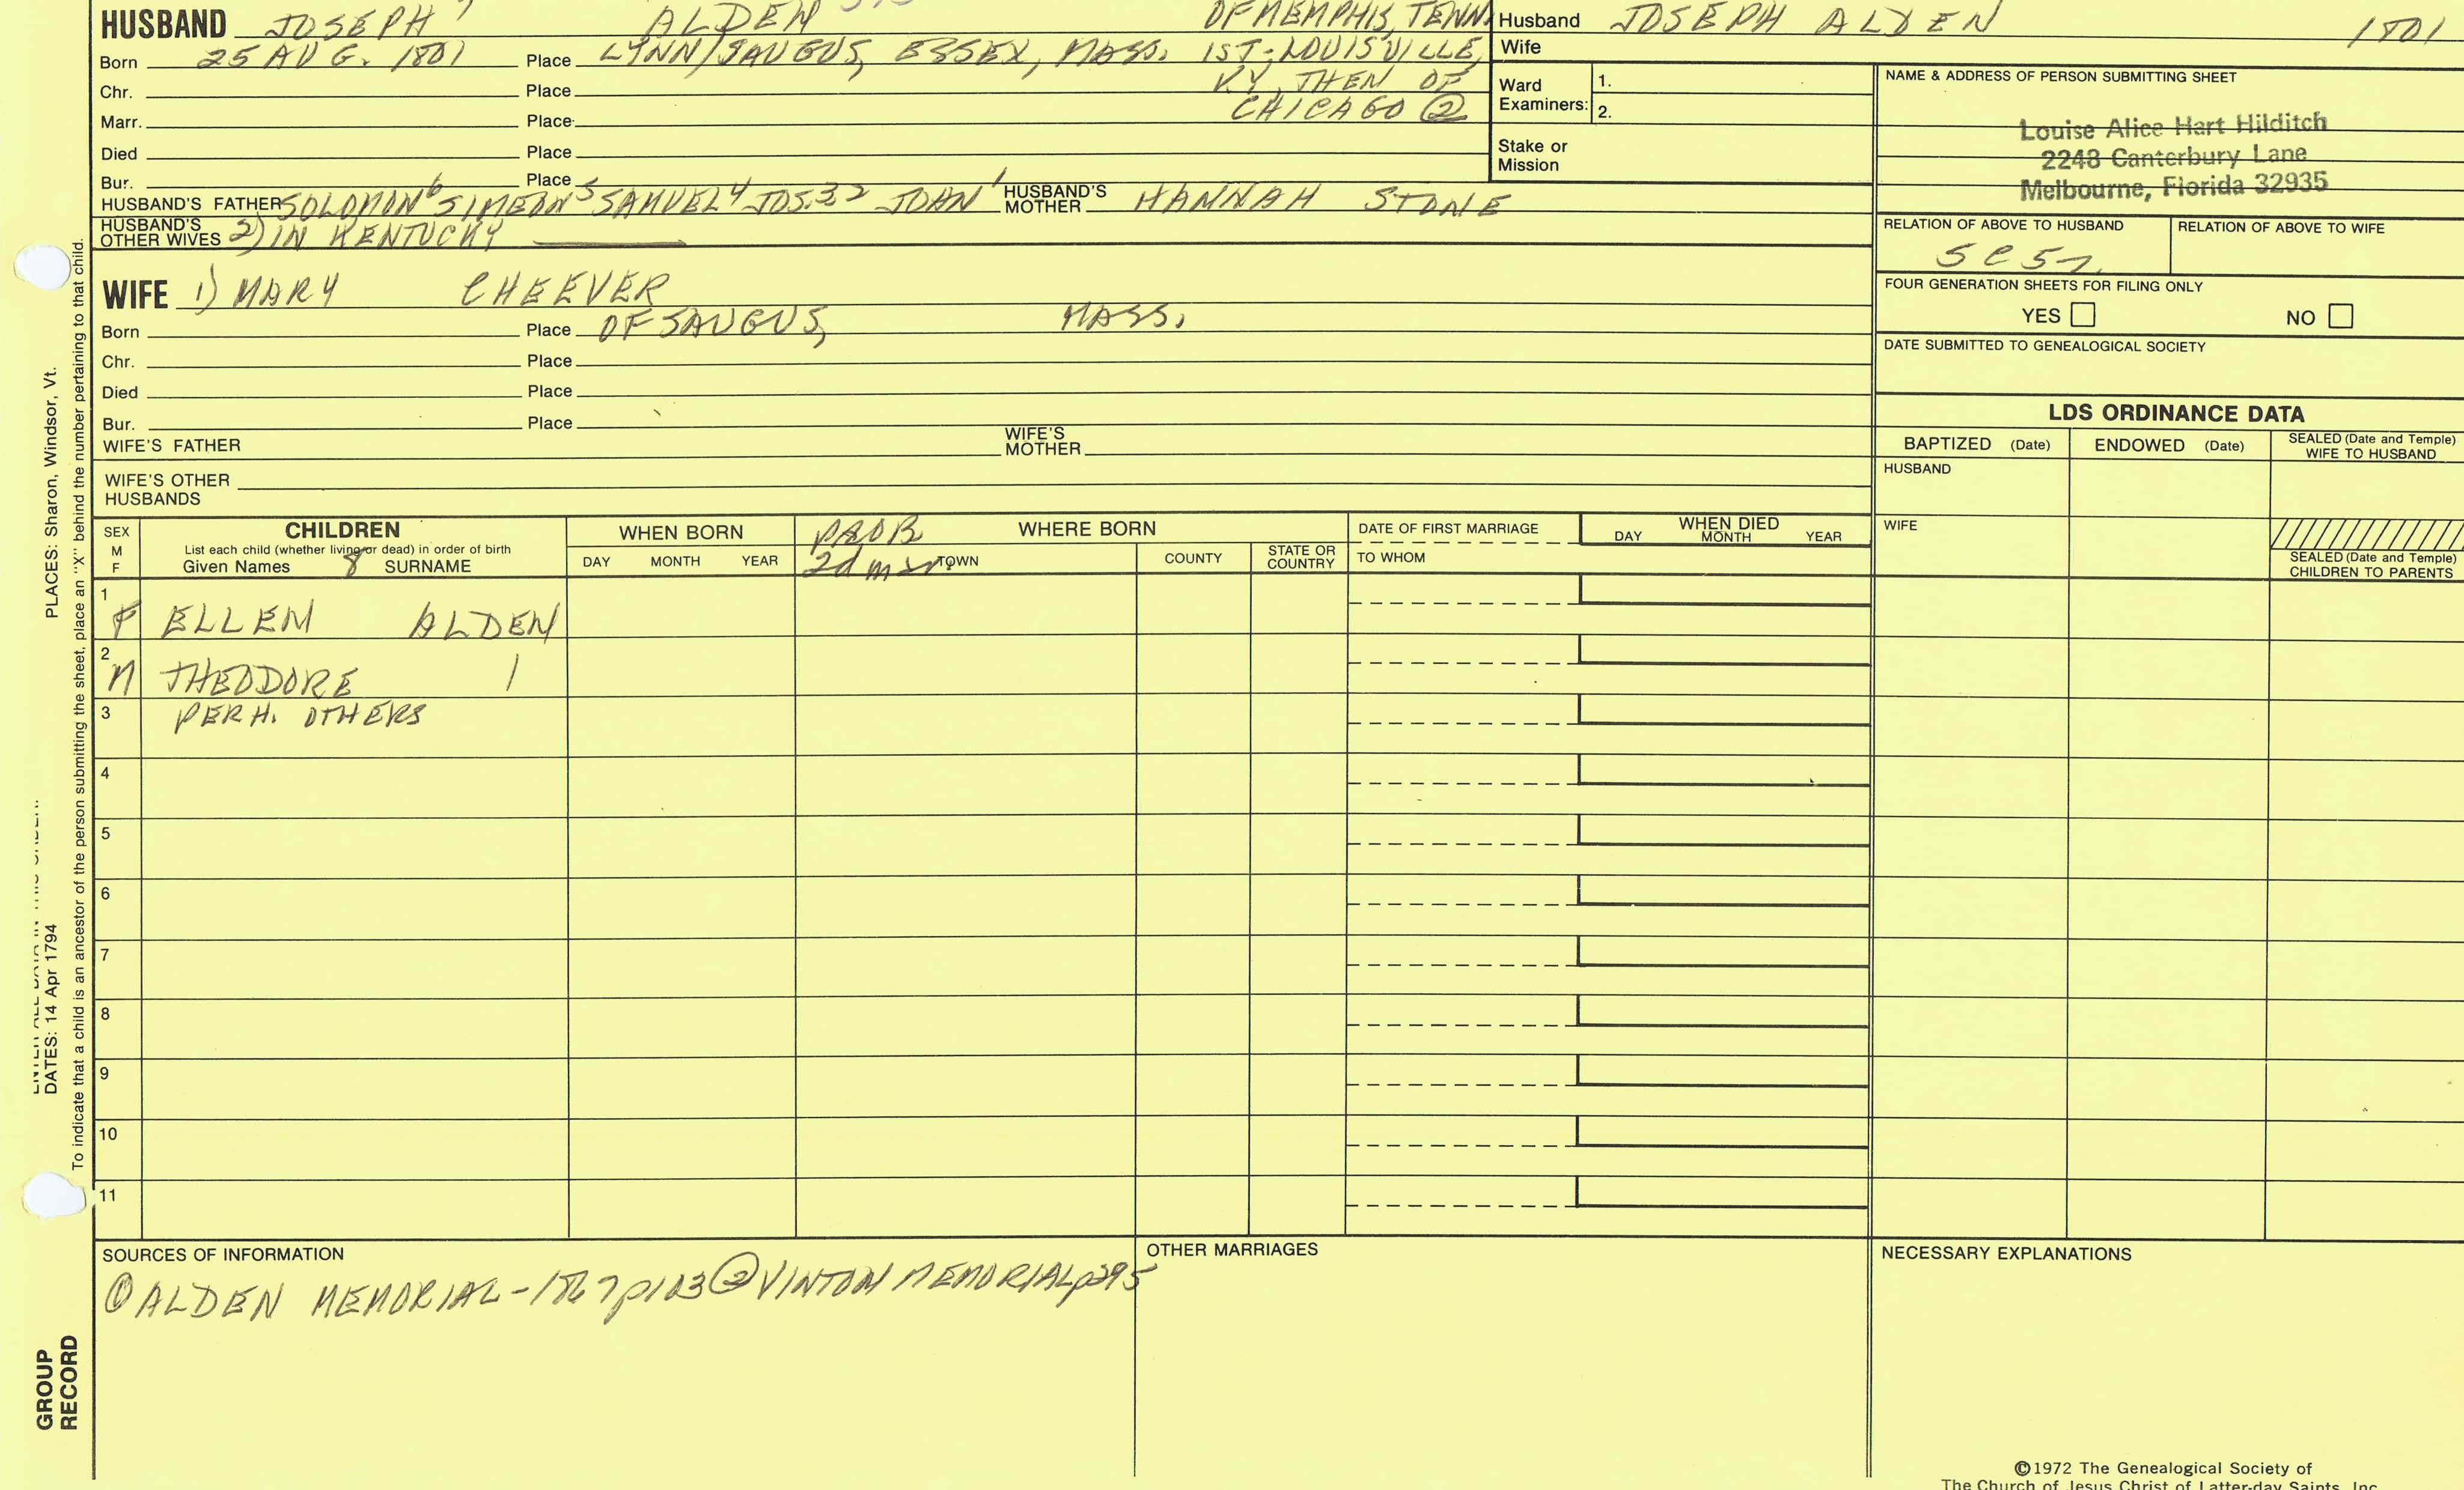 HUSBAND JOSEPH 7 ALDEN OF MEMPHIS, TENN.
Born 25 AUG. 1801 Place LYNN/SAUGUS, ESSEX, MASS. 1ST: LOUISVILLE,
Chr. Place KY, THEN OF
Marr. Place CHICAGO ②
Died Place
Bur. Place
HUSBAND'S FATHER SOLOMON 6 SIMEON 5 SAMUEL 4 JOS. 3 2 JOHN 1 HUSBAND'S MOTHER HANNAH STONE
HUSBAND'S OTHER WIVES 2) IN KENTUCKY
WIFE 1) MARY CHEEVER
Born Place OF SAUGUS, MASS.
Chr. Place
Died Place
Bur. Place
WIFE'S FATHER WIFE'S MOTHER
WIFE'S OTHER HUSBANDS
Husband JOSEPH ALDEN 1801
Wife
Ward Examiners: 1.
2.
Stake or Mission
NAME & ADDRESS OF PERSON SUBMITTING SHEET
Louise Alice Hart Hilditch
2248 Canterbury Lane
Melbourne, Florida 32935
RELATION OF ABOVE TO HUSBAND RELATION OF ABOVE TO WIFE
FOUR GENERATION SHEETS FOR FILING ONLY
YES NO
DATE SUBMITTED TO GENEALOGICAL SOCIETY
LDS ORDINANCE DATA
BAPTIZED (Date) ENDOWED (Date) SEALED (Date and Temple) WIFE TO HUSBAND
HUSBAND
WIFE
SEALED (Date and Temple) CHILDREN TO PARENTS
SEX M F
CHILDREN
List each child (whether living or dead) in order of birth
Given Names 8 SURNAME
WHEN BORN
DAY MONTH YEAR
PROB WHERE BORN
2d mar TOWN COUNTY STATE OR COUNTRY
DATE OF FIRST MARRIAGE
TO WHOM
WHEN DIED
DAY MONTH YEAR
1 F ELLEN ALDEN
2 M THEODORE
3 PERH. OTHERS
4
5
6
7
8
9
10
11
SOURCES OF INFORMATION
① ALDEN MEMORIAL-1867 p103 ② VINTON MEMORIAL p295
OTHER MARRIAGES
NECESSARY EXPLANATIONS
©1972 The Genealogical Society of
The Church of Jesus Christ of Latter-day Saints, Inc.
PLACES: Sharon, Windsor, Vt.
DATES: 14 Apr 1794
To indicate that a child is an ancestor of the person submitting the sheet, place an "X" behind the number pertaining to that child.
GROUP
RECORD